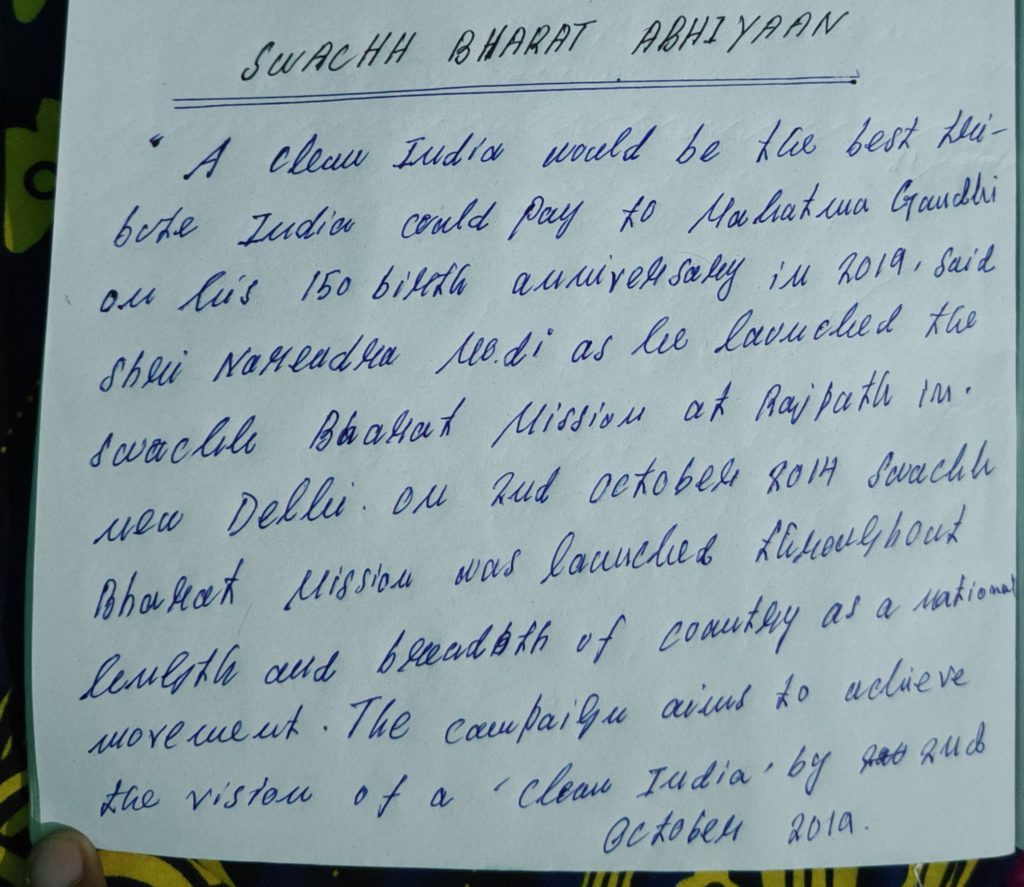 SWACHH BHARAT ABHIYAAN
" A clean India would be the best tri-
bute India could pay to Mahatma Gandhi
on his 150 birth anniversary in 2019, said
Shri Narendra Modi as he launched the
Swachh Bharat Mission at Rajpath in.
new Delhi. on 2nd october 2014 Swachh
Bharat Mission was launched throughout
length and breadth of country as a national
movement. The campaign aims to achieve
the vision of a 'Clean India' by 2nd
October 2019.